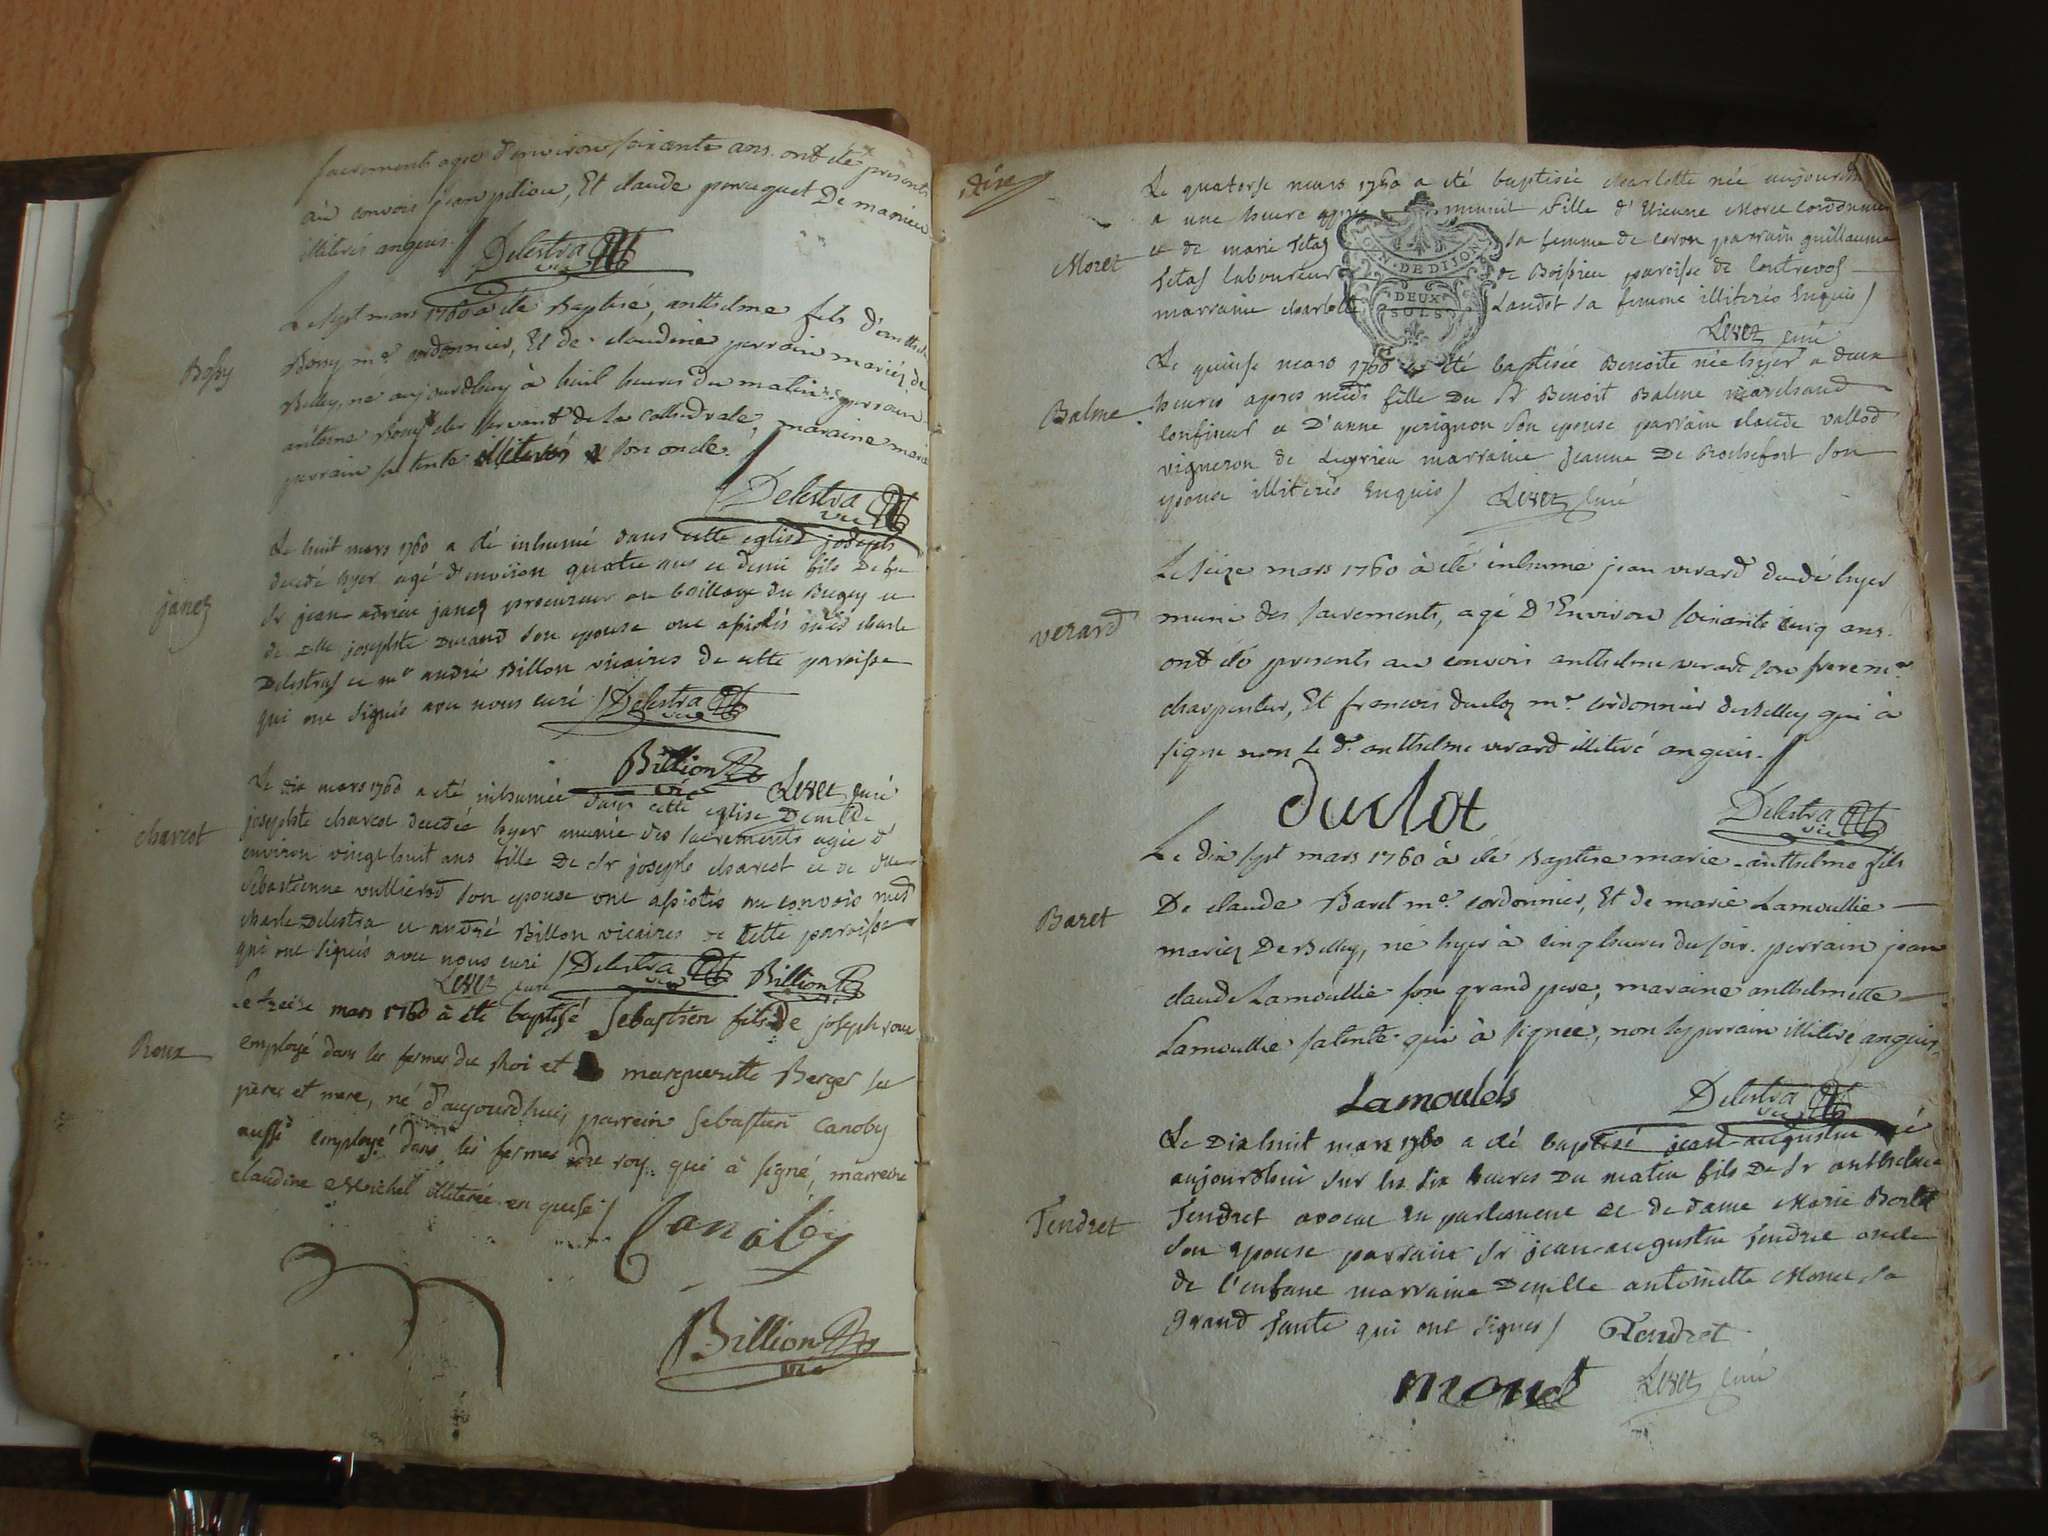 sacrements agé d'environ soixante ans. ont été presents
au convois jean pilion, Et claude perruquet De marieu
illiterés anquis. Delestra vic
Le sept mars 1760 à été Baptisé, anthelme fils d'anthelme
Bouy me. cordonnier, Et de claudine perrain mariéz de
Belley, né aujourdhuy à huit heures du matin. perrain
antoine clerc servant de la cathedrale, maraine marie
perrain sa tente illiterés son oncle.
Delestra vic
Le huit mars 1760 a été inhumé dans cette eglise joseph
decedé hyer agé d'environ quatre ans et demi fils De feu
Sr jean adrien janez procureur au bailliage du Bugey et
de Dlle josephte Durand son epouse ont assistés charle
Delestras et mre andré Billon vicaires de cette paroisse
janez
qui ont signés avec nous curé / Delestra vic
Billion vic Levet curé
Le dix mars 1760 a été inhumée dans cette eglise Demlle
josephte charcot decedée hyer munie des sacrements agée d'
charcot
environ vingt huit ans fille De Sr joseph charcot et de Dlle
Sebastienne vullierod son epouse ont assistés au convois
charle Delestra et andré Billon vicaires de cette paroisse
qui ont signés avec nous curé / Delestra vic Billion
Levet curé
Le treize mars 1760 à été baptisé Sebastien fils de joseph roux
Roux
employé dans les fermes du Roi et margueritte Berger ses
pères et mere, né d'aujourdhui, parrein Sebastien Canoby
aussi employé dans les fermes du roy qui à signé, marreine
claudine Michel illiterée enquise /
Canoby
Billion vic
dixe
Le quatorse mars 1760 a été baptisée charlotte née aujourdhui
a une heure apres minuit fille d'Etienne Moret cordonnier
Moret
et de marie Setas sa femme de ceron parrain guillaume
Setas laboureur de Boissieu paroisse de Contrevos
marraine charlotte Landot sa femme illiterés Enquis /
GEN. DE DIJON
DEUX
SOLS
Levet curé
Le quinse mars 1760 a été baptisée Benoite née hyer a deux
Balme
heures apres midi fille Du Sr Benoit Balme marchand
confiseur et D'anne perignon son epouse parrain claude vallod
vigneron de marraine Jeanne De Rochefort son
epouse illiterés Enquis / Levet curé
Le seize mars 1760 à été inhumé jean verard decedé hyer
verard
muni des sacrements, agé d'Environ soixante cinq ans.
ont été presents au convois anthelme verard son frere me.
charpentier, Et francois ducloz me. cordonnier de Belley qui à
signe non le dt. anthelme verard illiteré anquis.
duclot
Delestra vic
Le dix sept mars 1760 à été Baptise marie-anthelme fils
Baret
De claude Baret me. cordonnier, Et de marie Lamoullie
mariez De Belley, né hyer à cinq heures du soir. perrain jean
claude Lamoullie son grand pere, maraine anthelmette
Lamoullie sa tente qui à signée, non le perrain illiteré anquis.
Lamoulels
Delestra vic
Le Dixhuit mars 1760 a été baptisé jean-augustin né
aujourdhui sur les six heures Du matin fils De Sr anthelme
Tendret
Tendret avocat en parlement et de dame Marie
son epouse parrain Sr jean-augustin Tendret oncle
de l'enfant marraine Demlle antoinette Monet sa
grand tante qui ont signes / Tendret
monet Levet curé